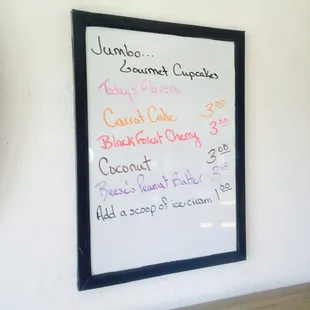 Jumbo...
Gourmet Cupcakes
Todays Flavors
Carrot Cake 3.00
Black Forest Cherry 3.00
Coconut 3.00
Reese's Peanut Butter 3.00
Add a scoop of ice cream 1.00